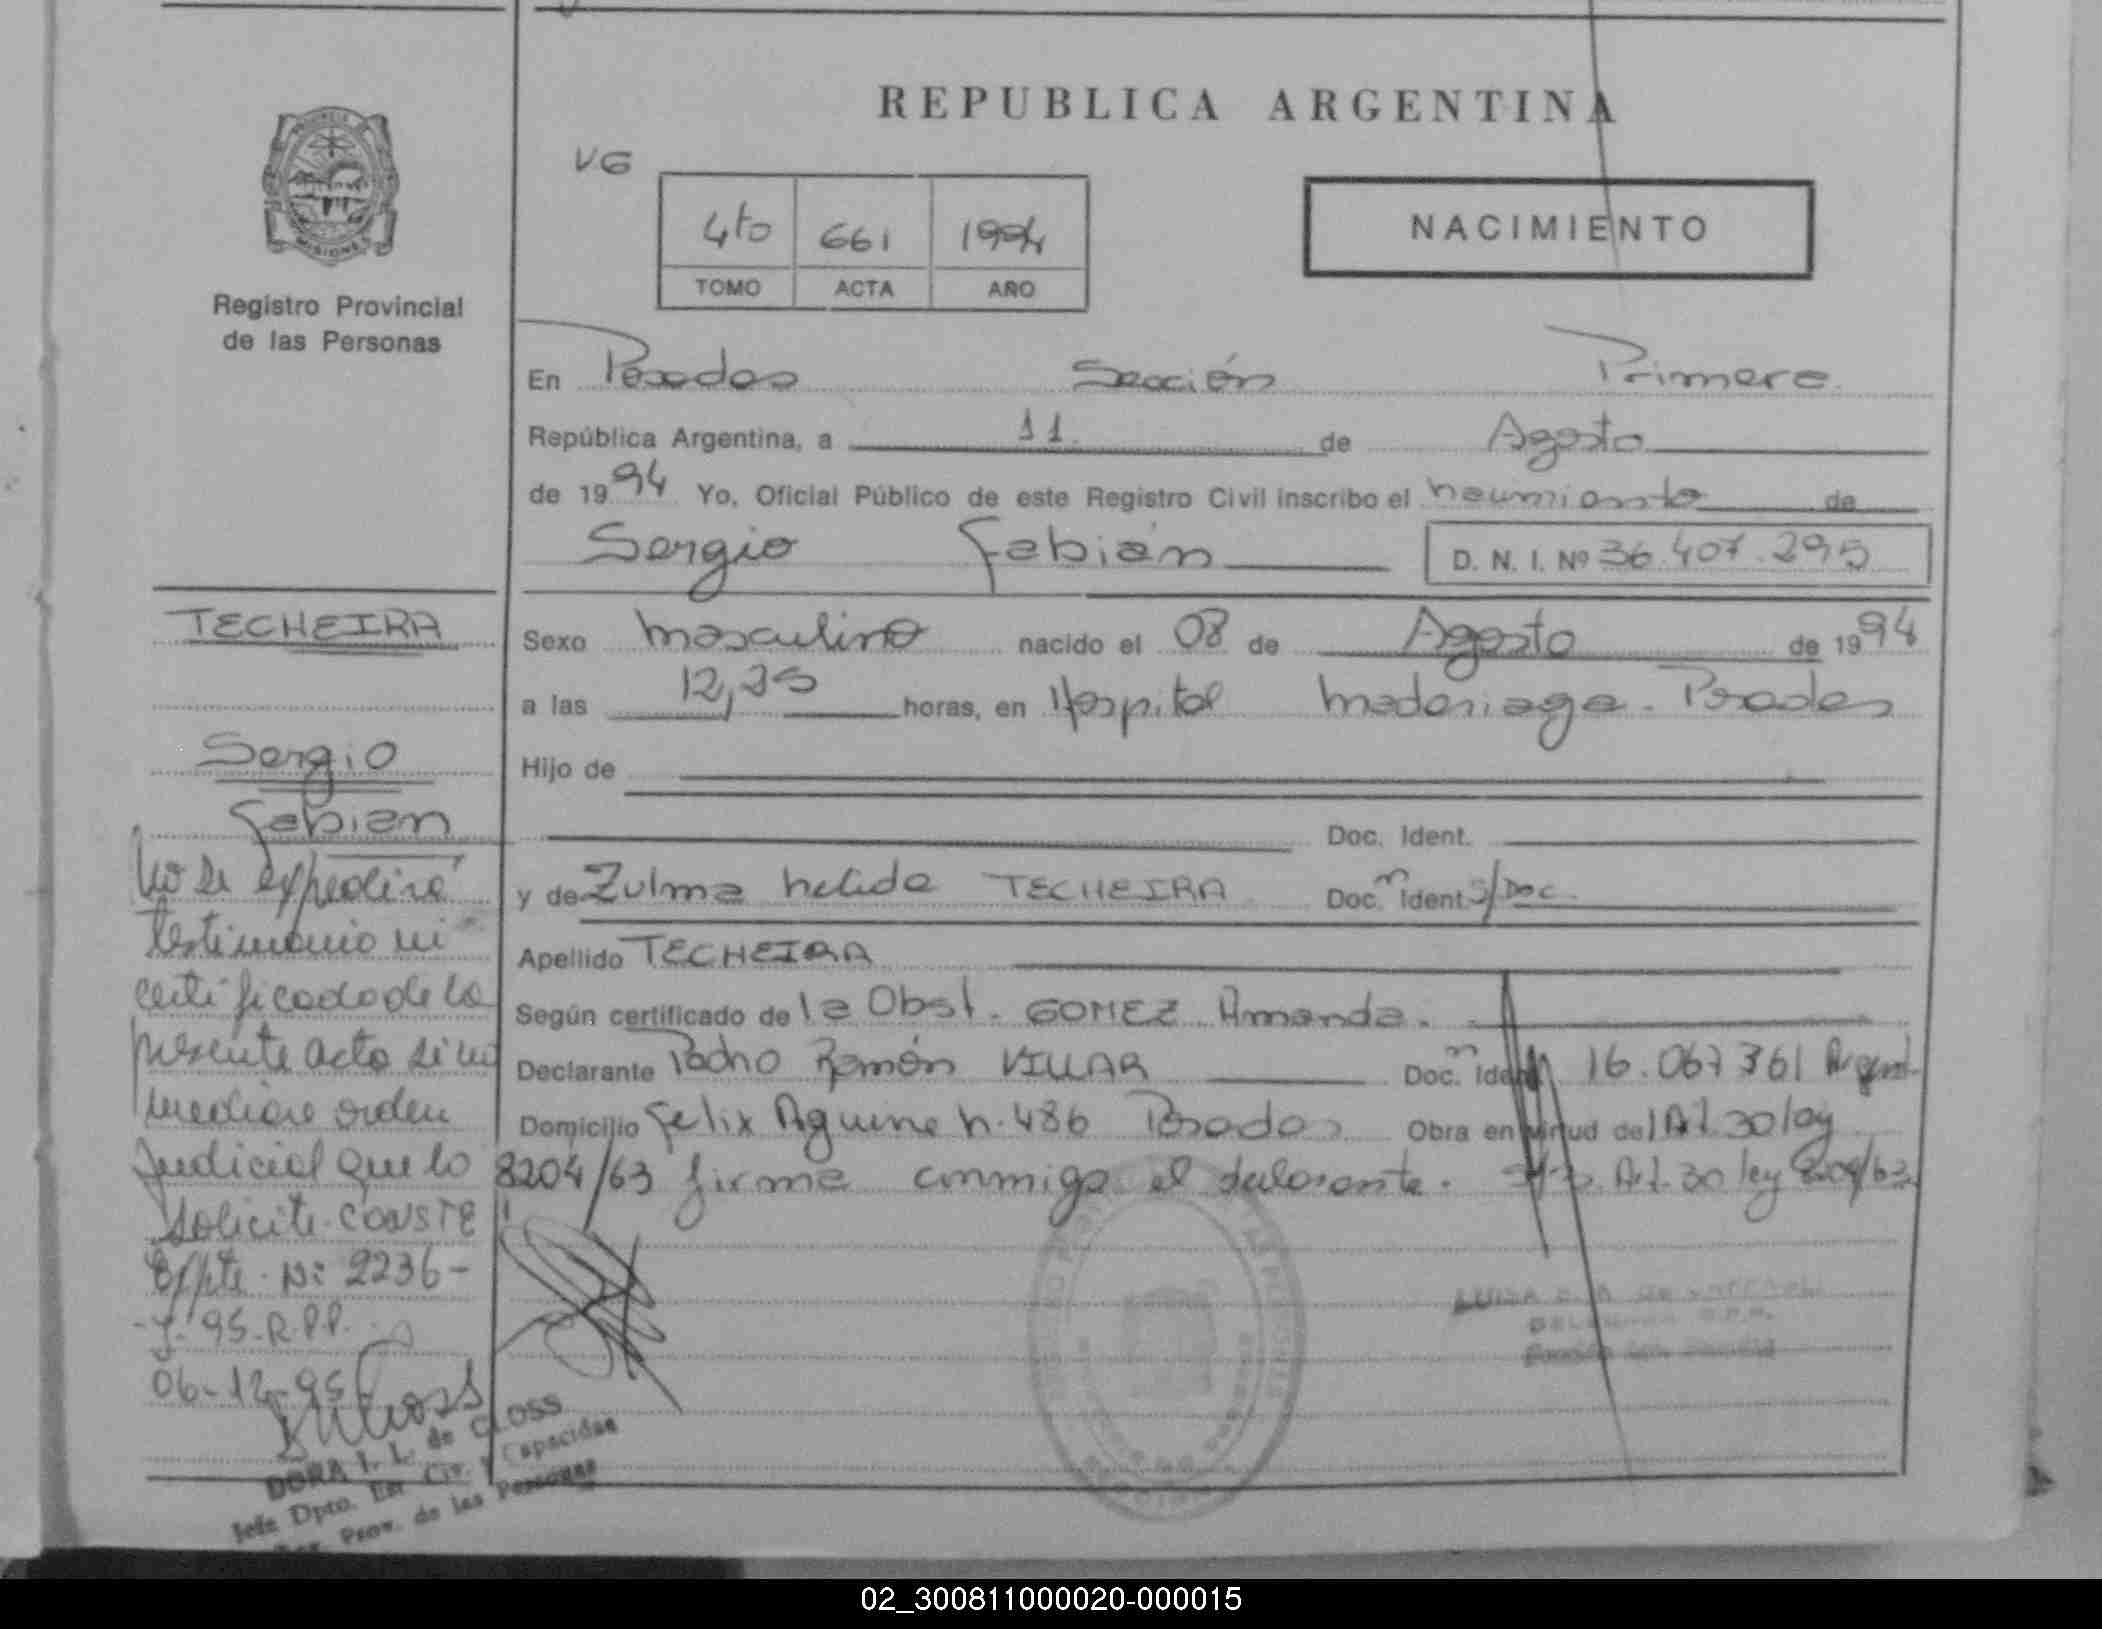 REPUBLICA ARGENTINA
VG
4to 661 1994
TOMO ACTA AÑO
NACIMIENTO
MISIONES
Registro Provincial
de las Personas
En Posadas Sección Primera
República Argentina, a 11 de Agosto
de 1994 Yo, Oficial Público de este Registro Civil inscribo el de
Sergio Fabián D. N. I. Nº 36.407.295
TECHEIRA
Sergio
Fabian
Sexo masculino nacido el 08 de Agosto de 1994
a las 12,35 horas, en Hospital Madariaga - Posadas
Hijo de
Doc. Ident.
y de Zulma Nelida TECHEIRA Doc. Ident. S/Doc.
Apellido TECHEIRA
Según certificado de la Obst. GOMEZ Amanda.
Declarante Pedro Ramón VILLAR Doc. Ident. 16.067.361 Argent.
Domicilio Felix Aguirre N. 486 Posadas Obra en virtud del Art. 30 ley
8204/63 firma conmigo el declarante. Art. 30 ley 8204/63
No se expedirá
testimonio ni
certificado de la
presente acta si no
mediare orden
Judicial que lo
solicite. CONSTE
Expte. Nº 2236-
95-R.P.P.
06-12-95
DORA I. L. de CLOSS
Jefe Dpto. Est. Civ. y Capacidad
Prov. de las Personas
02_300811000020-000015